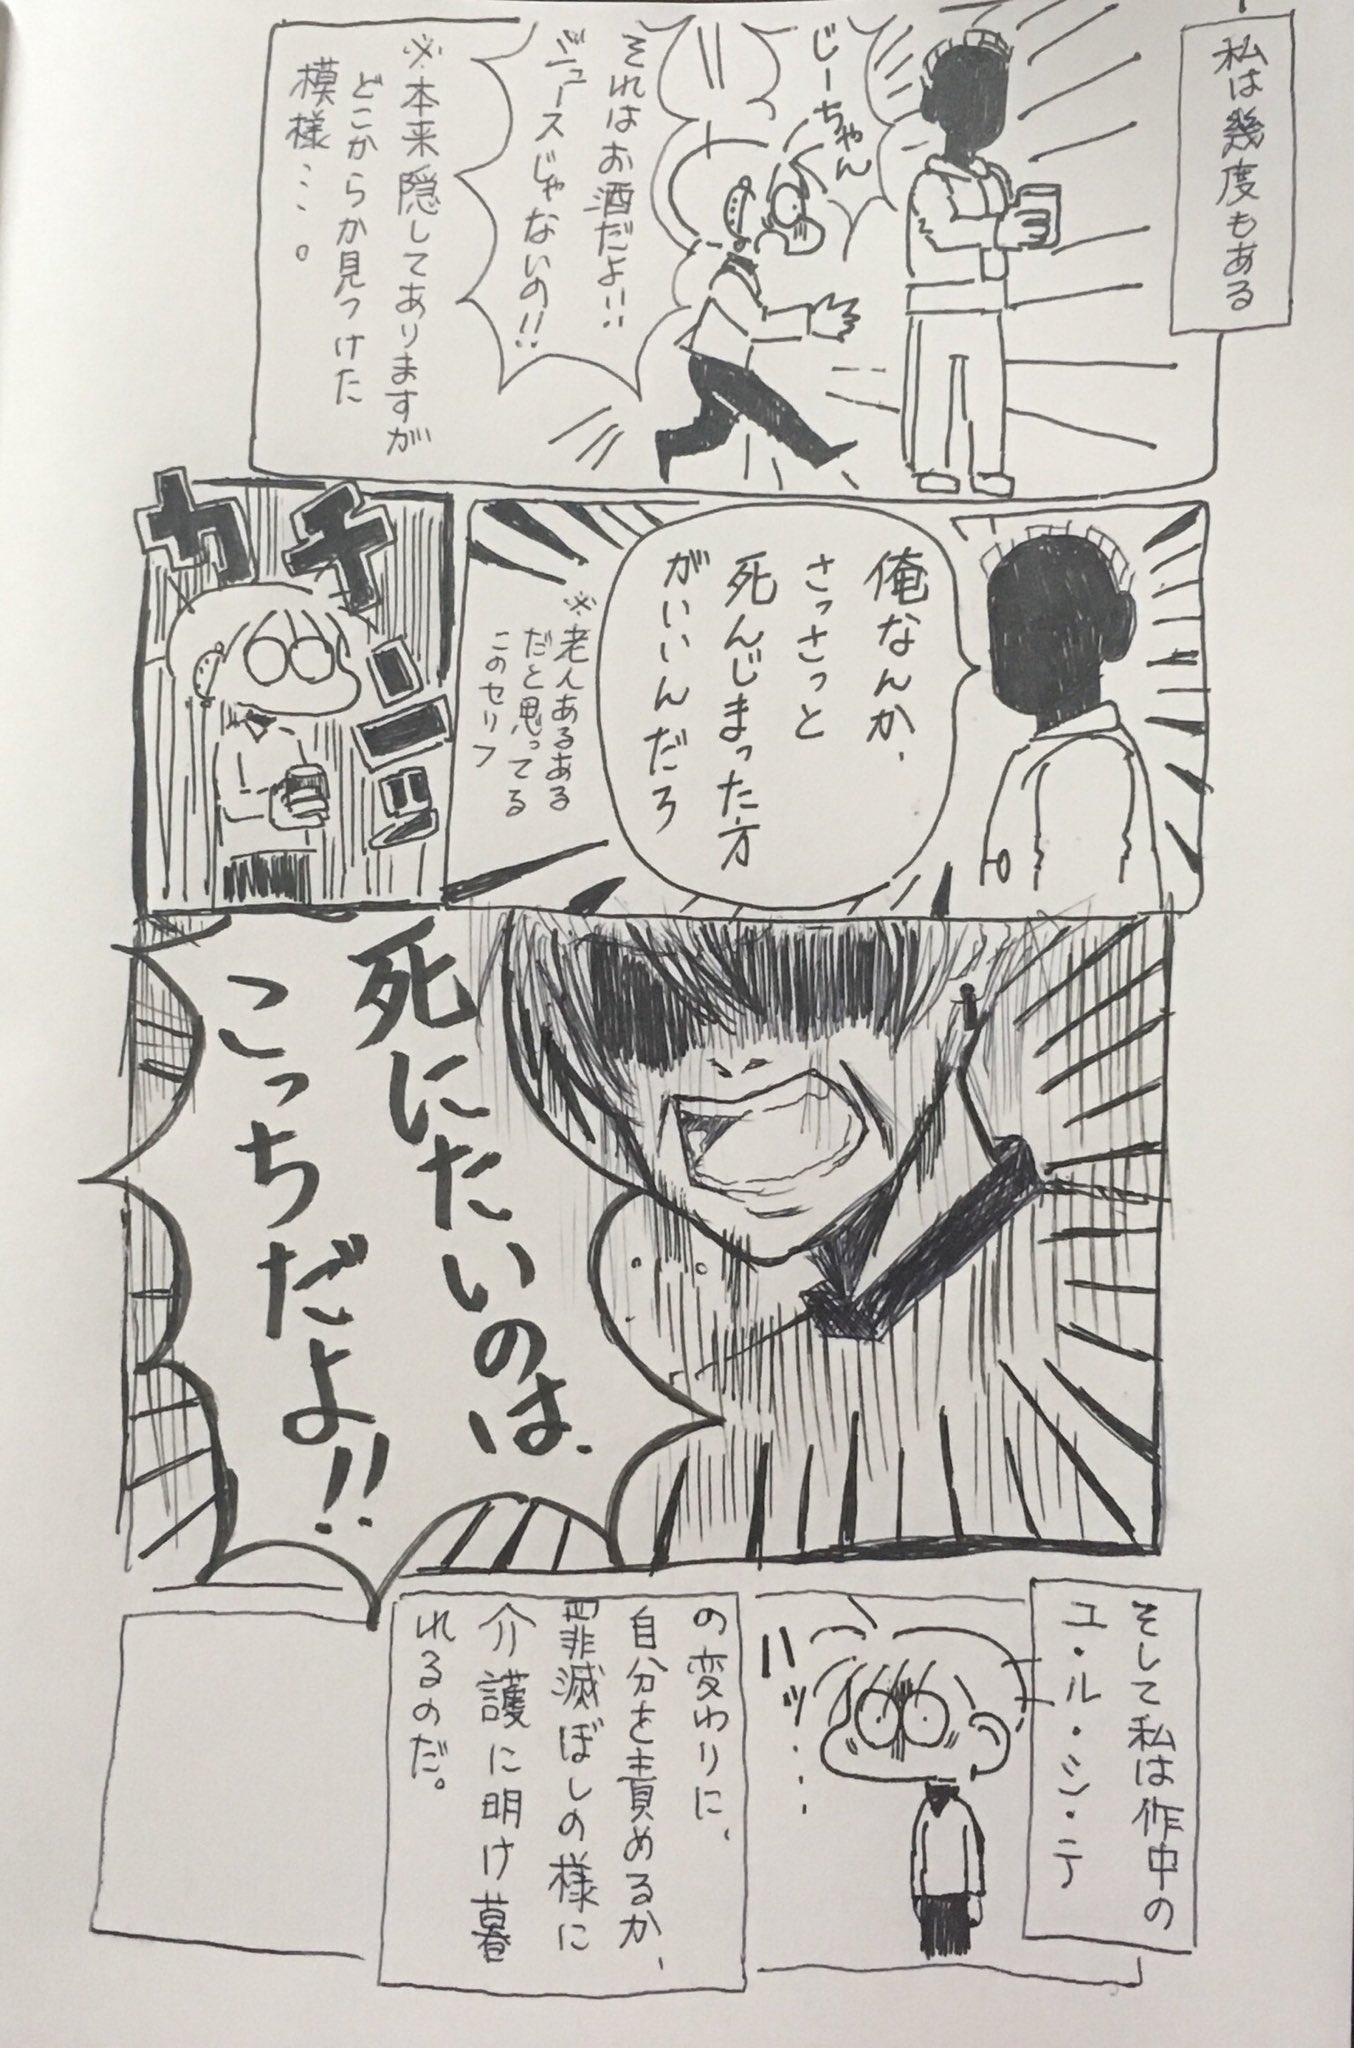 私は幾度もある
じーちゃん
それはお酒だよ!!
ジュースじゃないの!!
※本来隠してありますが
どこからか見つけた
模様・・・。
俺なんか、
さっさっと
死んじまった方
がいいんだろ
※老人あるある
だと思ってる
このセリフ
カチーン
死にたいのは、
こっちだよ!!
そして私は作中の
ユ・ル・シ・テ
ハッ・・・
の変わりに、
自分を責めるか、
罪滅ぼしの様に
介護に明け暮
れるのだ。